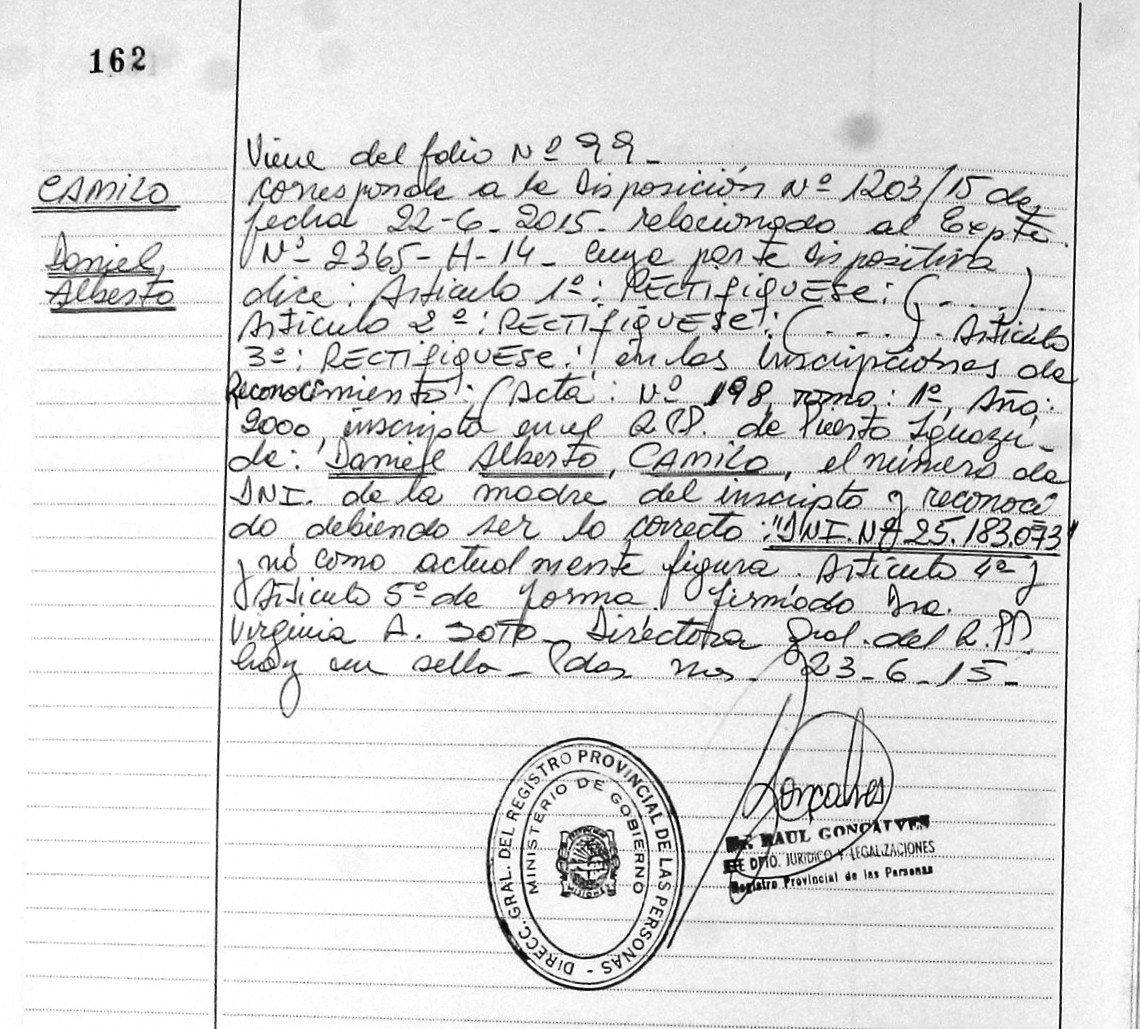 162
CAMILO
Daniel,
Alberto
Viene del folio Nº 99-
corresponde a la Disposición Nº 1203/15 de
fecha 22-6-2015- relacionado al Expte.
Nº 2365-H-14- cuya parte dispositiva
dice: Artículo 1º: RECTIFIQUESE: (....)
Artículo 2º: RECTIFIQUESE: (....). Artículo
3º: RECTIFIQUESE: en las inscripciones de
Reconocimiento: (Acta: Nº 198, tomo: 1º, Año:
2000, inscripta en el R.P.P. de Puerto Iguazú-
de: Daniel Alberto, CAMILO, el número de
DNI. de la madre del inscripto y reconoci
do debiendo ser lo correcto: "DNI. Nº 25.183.073"
y no como actualmente figura. Artículo 4º y
Artículo 5º de forma. firmado Dra.
Virginia A. SOTO- Directora Gral. del R.P.P.
hay un sello- Pdas 23-6-15-
DIRECC. GRAL. DEL REGISTRO PROVINCIAL DE LAS PERSONAS -
MINISTERIO DE GOBIERNO
MISIONES
Gonçalves
Dr. RAUL GONCALVES
JEFE DPTO. JURIDICO Y LEGALIZACIONES
Registro Provincial de las Personas